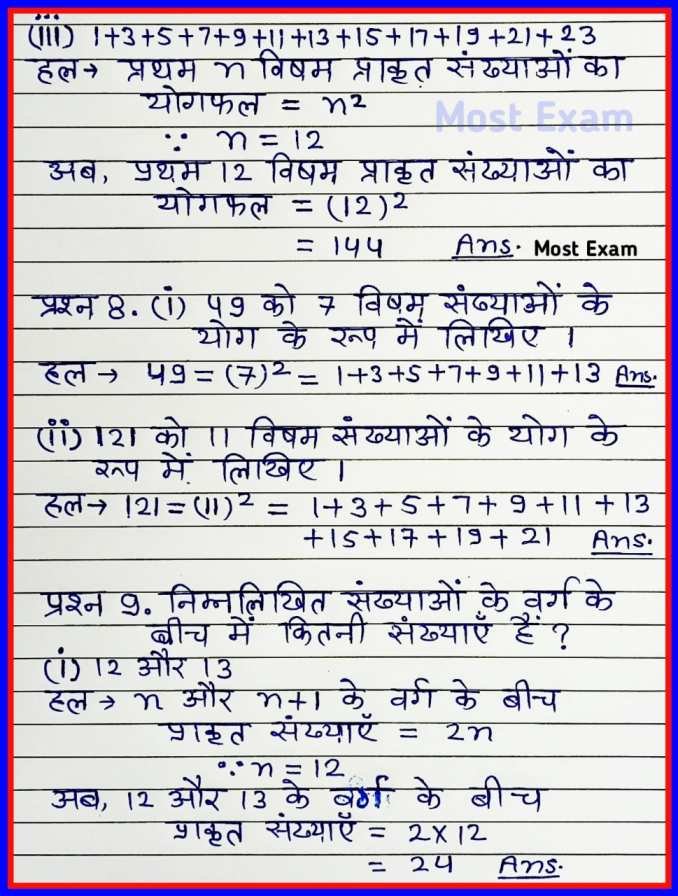 (iii) 1+3+5+7+9+11+13+15+17+19+21+23
हल→ प्रथम n विषम प्राकृत संख्याओं का
योगफल = n²
Most Exam
∵ n = 12
अब, प्रथम 12 विषम प्राकृत संख्याओं का
योगफल = (12)²
= 144 Ans. Most Exam
प्रश्न 8. (i) 49 को 7 विषम संख्याओं के
योग के रूप में लिखिए ।
हल → 49 = (7)² = 1+3+5+7+9+11+13 Ans.
(ii) 121 को 11 विषम संख्याओं के योग के
रूप में लिखिए ।
हल→ 121 = (11)² = 1+3+5+7+9+11+13
+15+17+19+21 Ans.
प्रश्न 9. निम्नलिखित संख्याओं के वर्ग के
बीच में कितनी संख्याएँ हैं ?
(i) 12 और 13
हल → n और n+1 के वर्ग के बीच
प्राकृत संख्याएँ = 2n
∵ n = 12
अब, 12 और 13 के वर्ग के बीच
प्राकृत संख्याएँ = 2×12
= 24 Ans.